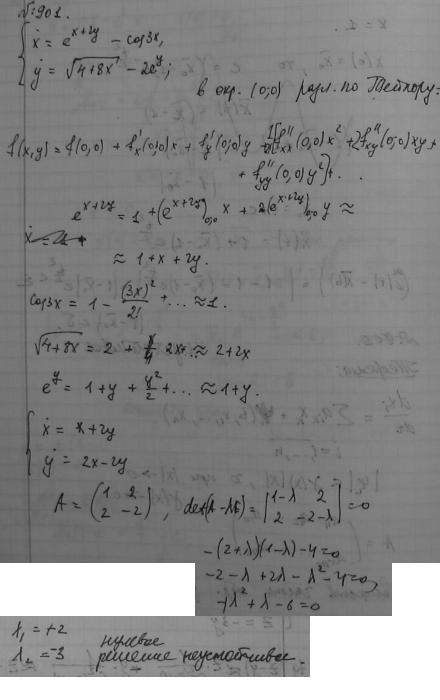 №901.
{ ẋ = e^{x+2y} - cos3x,
ẏ = √(4+8x) - 2e^y;
в окр. (0;0) разл. по Тейлору:
f(x,y) = f(0,0) + f'_x(0;0)x + f'_y(0;0)y + [f''_{xx}(0,0)x² + 2f''_{xy}(0;0)xy +
+ f''_{yy}(0,0)y²] + ...
e^{x+2y} = 1 + (e^{x+2y})_{0;0} x + 2(e^{x+2y})_{0;0} y ≈
≈ 1 + x + 2y.
cos3x = 1 - (3x)²/2! + ... ≈ 1.
√(4+8x) = 2 + 2x + ... ≈ 2+2x
e^y = 1 + y + y²/2 + ... ≈ 1+y.
{ ẋ = x+2y
ẏ = 2x-2y
A = (1 2; 2 -2), det(A-λE) = |1-λ 2; 2 -2-λ| = 0
-(2+λ)(1-λ) - 4 = 0
-2 - λ + 2λ - λ² - 4 = 0,
λ² + λ - 6 = 0
λ₁ = +2
λ₂ = -3
нулевое
решение неустойчивое.